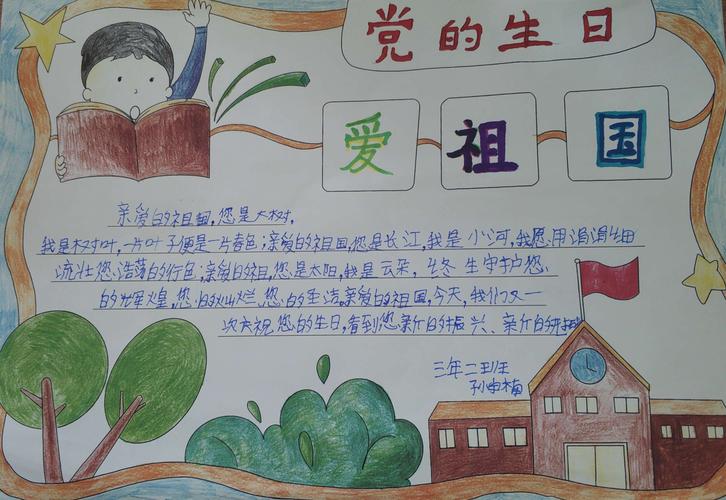 党的生日
爱祖国
亲爱的祖国,您是大树,
我是树叶,一片叶子便是一片春色;亲爱的祖国,您是长江,我是小河,我愿用涓涓细
流壮您浩荡的行色;亲爱的祖国,您是太阳,我是云朵,
的辉煌,您的灿烂,您的圣洁,亲爱的祖国,今天,我们又一
次庆祝您的生日,看到您新的振兴、亲的
三年二班
孙